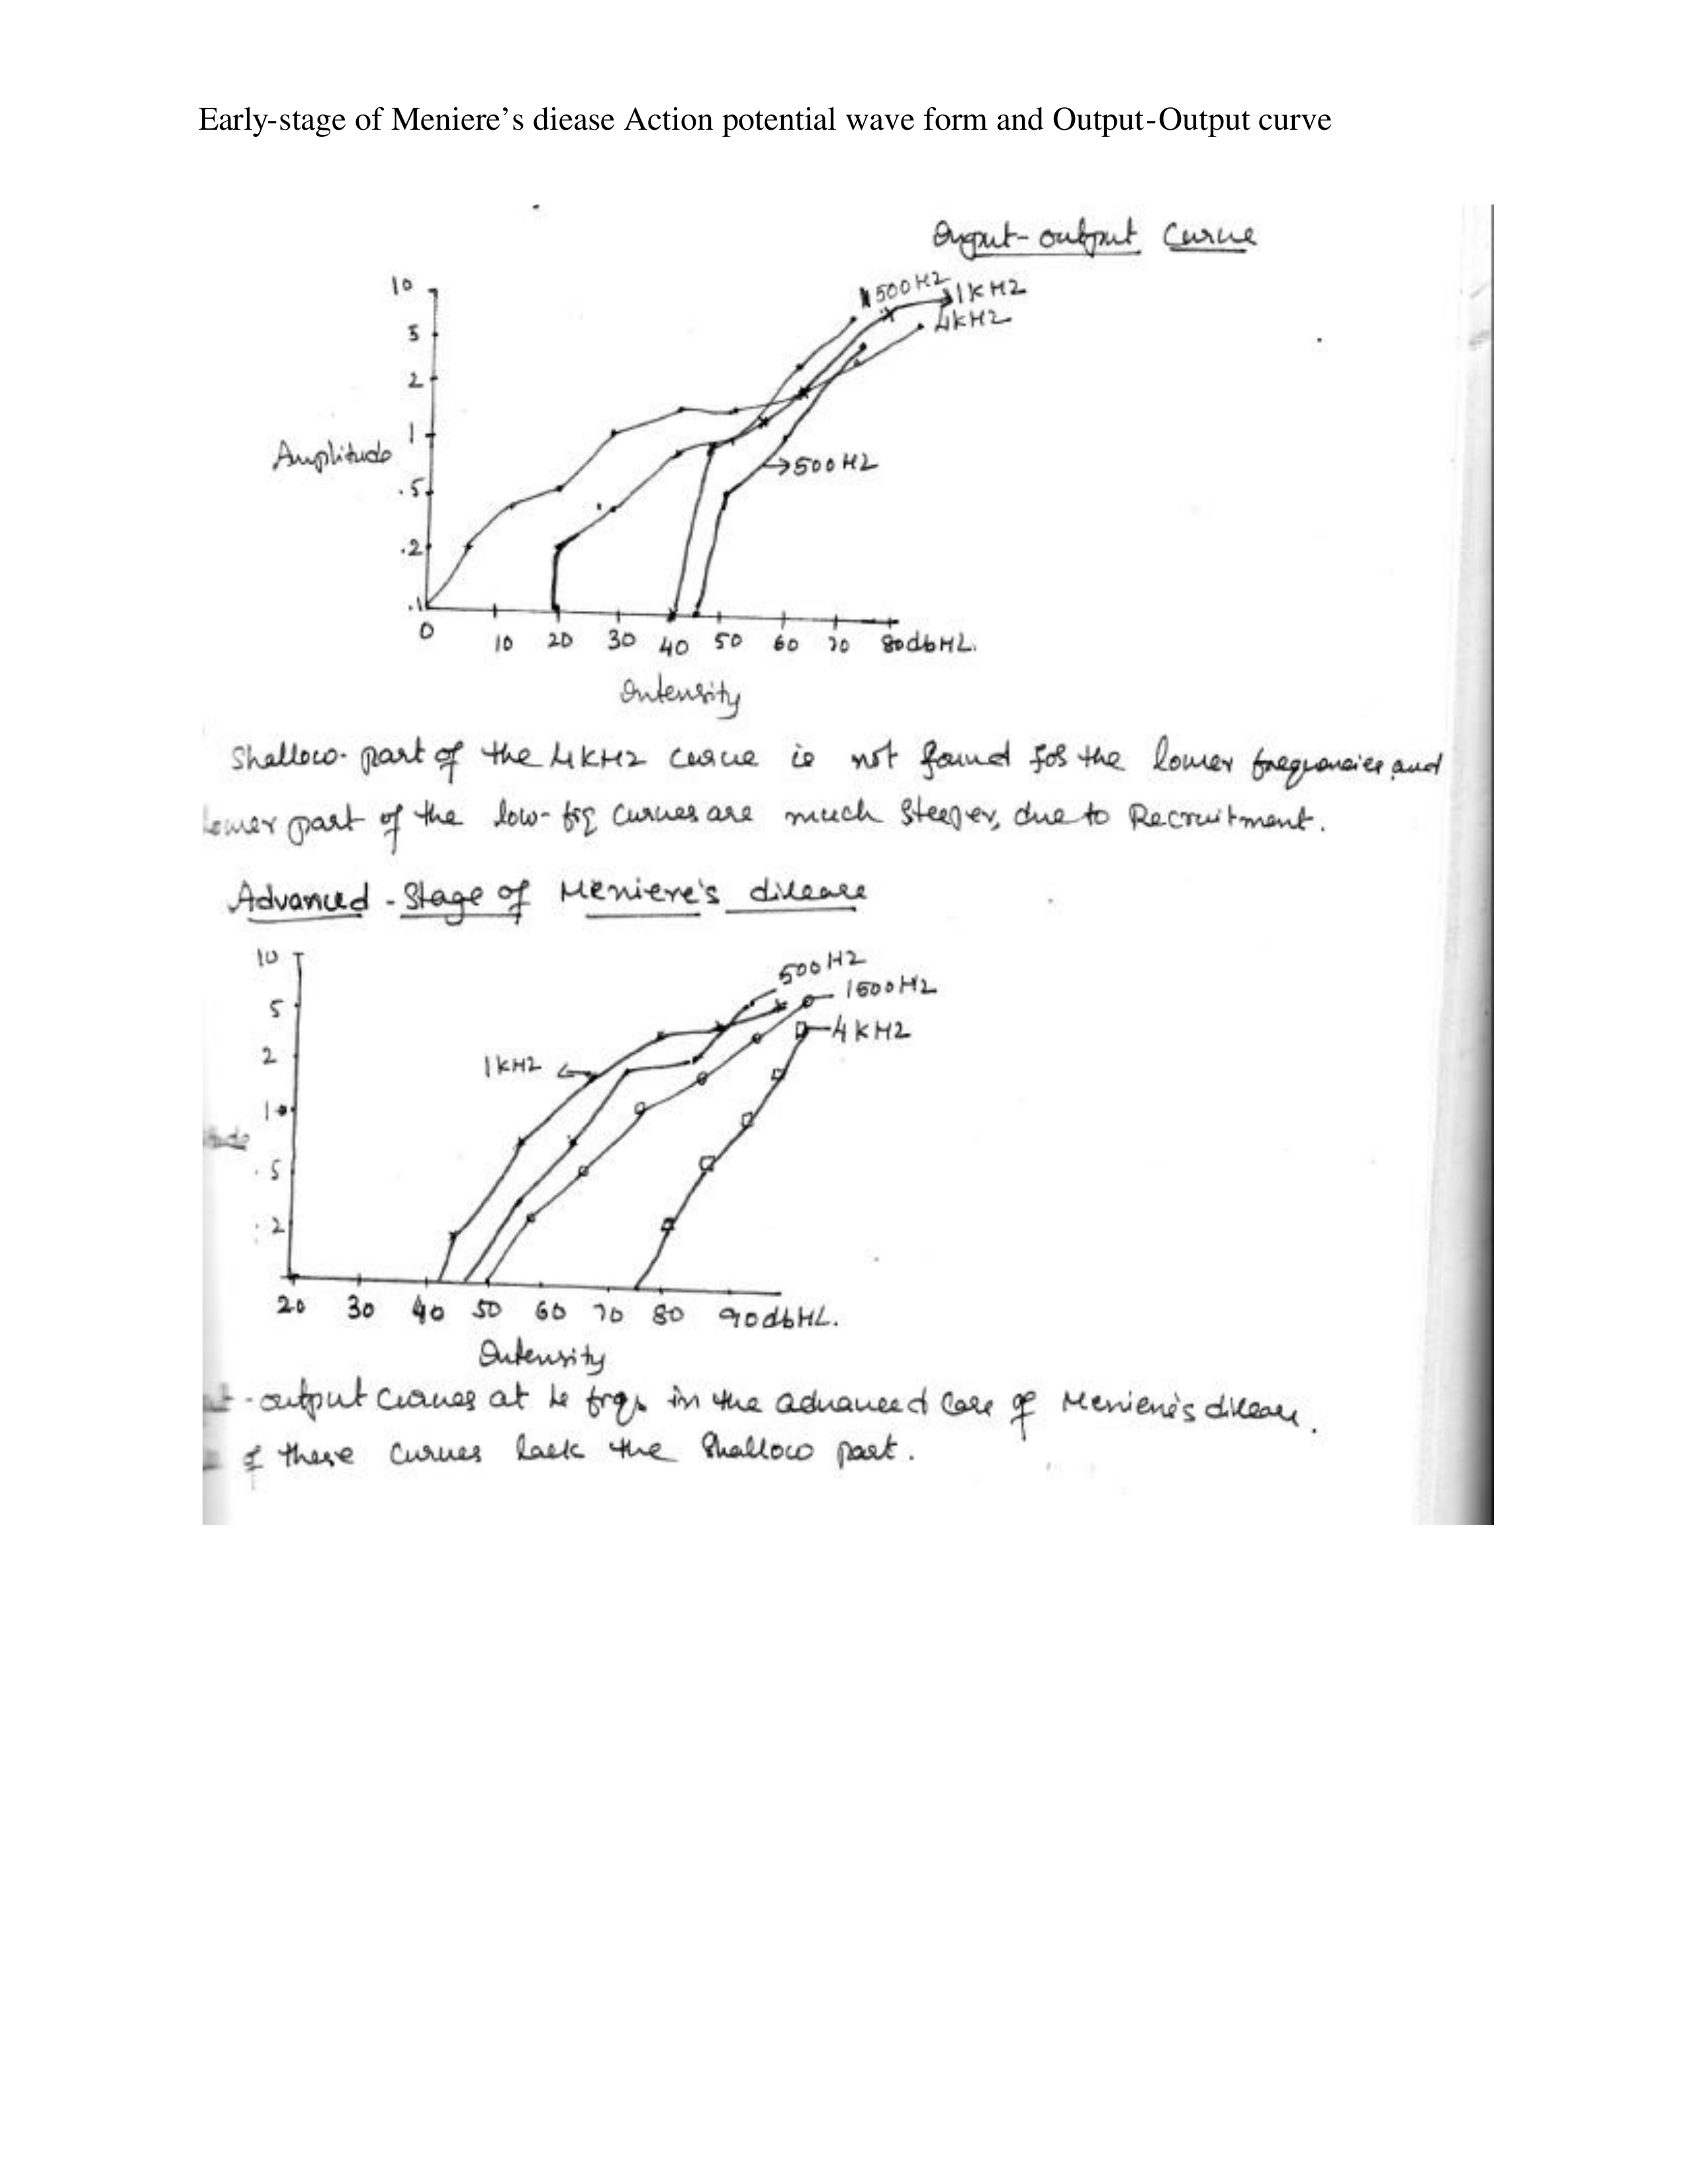 Early-stage of Meniere's diease Action potential wave form and Output-Output curve
Input-output Curve
500HZ
1KHZ
4KHZ
10
5
2
1
Amplitude
.5
.2
.1
→500HZ
0 10 20 30 40 50 60 70 80dbHL.
Intensity
Shallow-part of the 4KHZ curve is not found for the lower frequencies and
Lower part of the low-frq curves are much Steeper, due to Recruitment.
Advanced-Stage of Meniere's disease
10
5
2
1
.5
.2
500HZ
1500HZ
4KHZ
1KHZ
20 30 40 50 60 70 80 90dbHL.
Intensity
-output Curves at 4 frqs in the advanced Case of Meniere's disease.
these Curves lack the Shallow part.